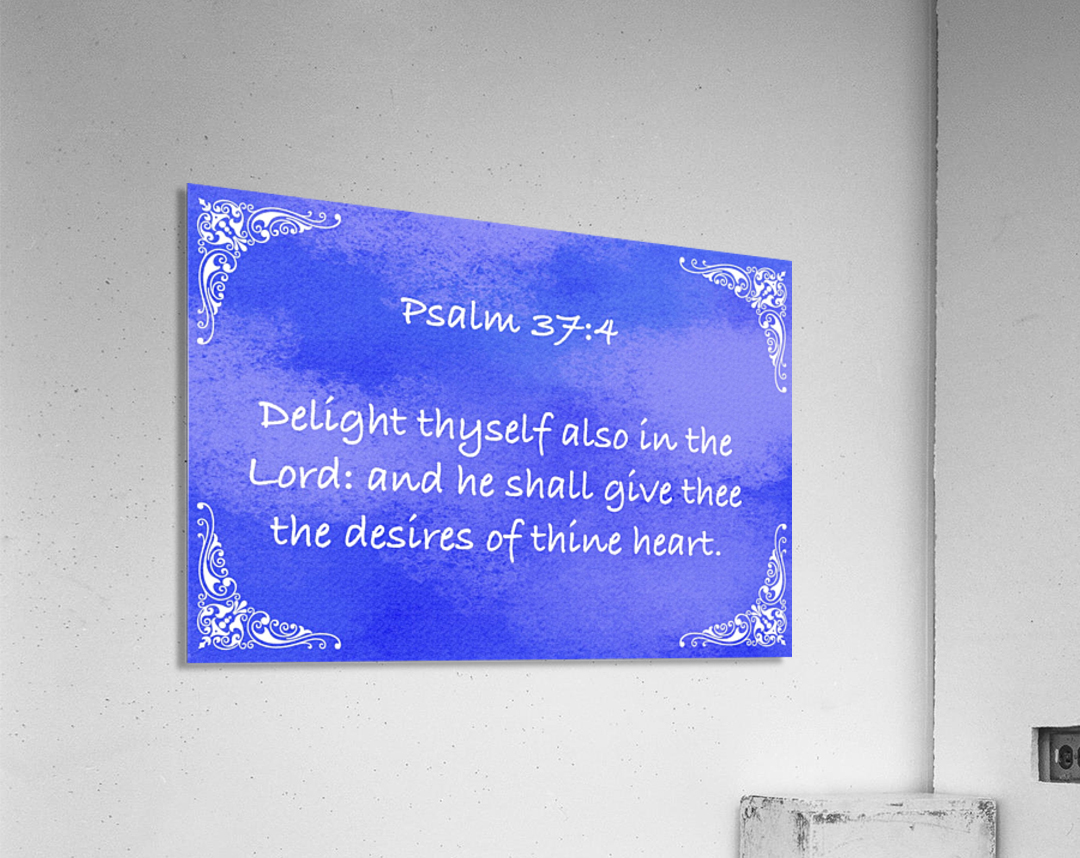 Psalm 37:4
Delight thyself also in the
Lord: and he shall give thee
the desires of thine heart.